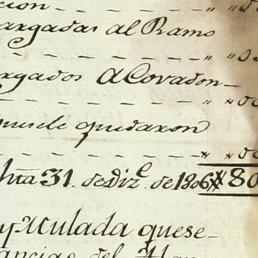 cion
argadas al Ramo
rgados A Covadon-
quedaron
hta 31. de diz.e de 1806 # 80
y Mulada quese-
ancias del